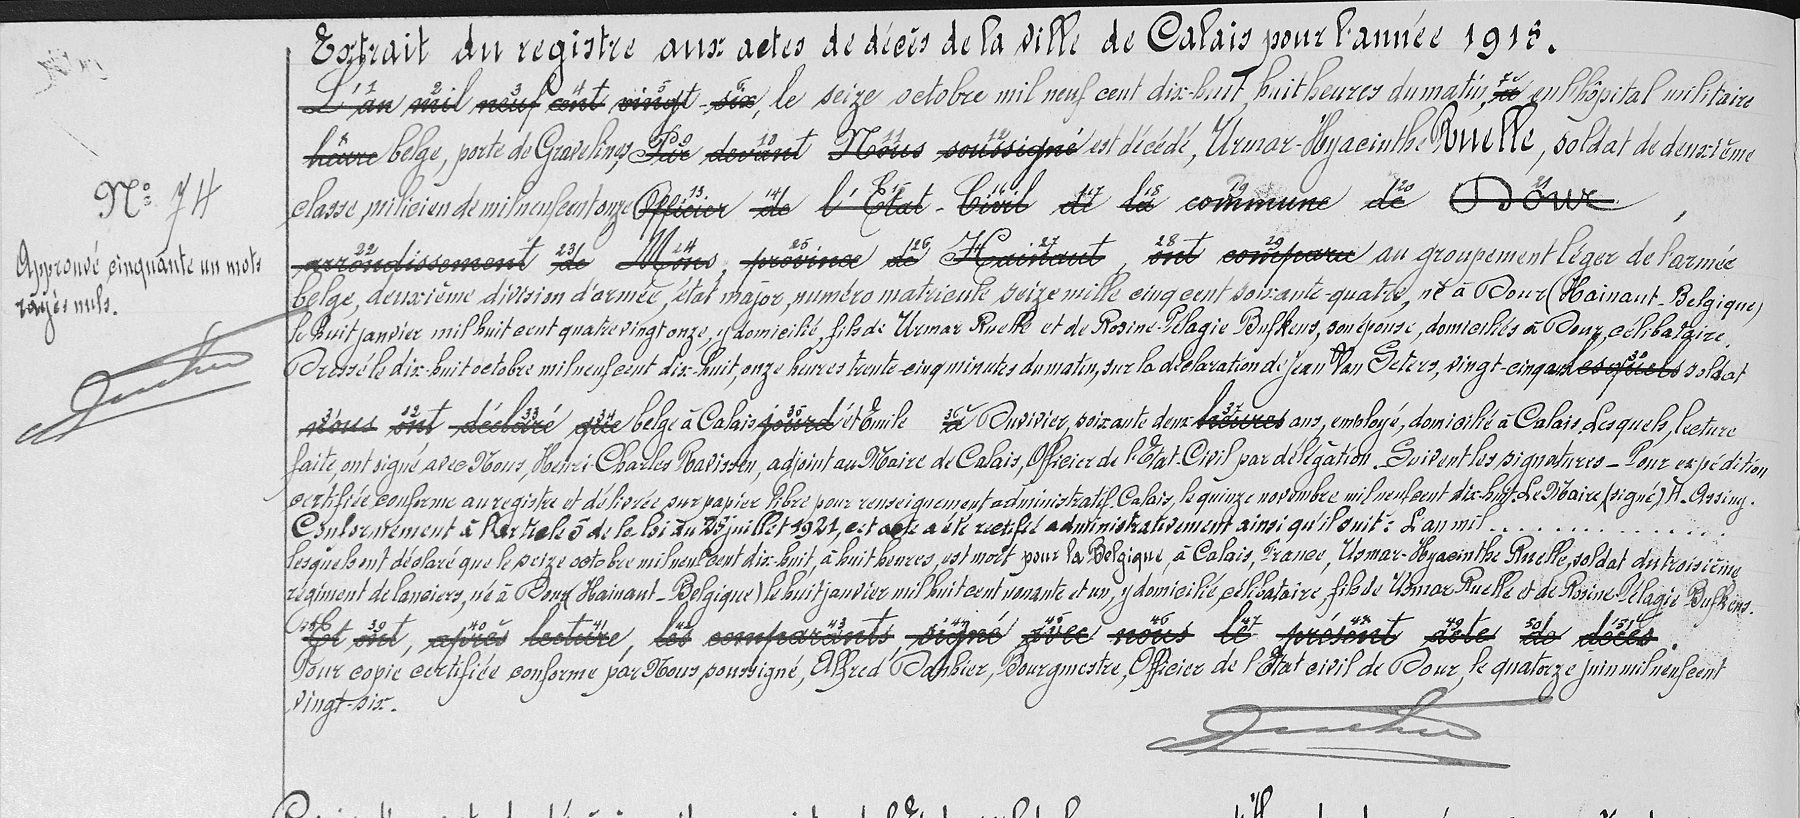 Extrait du registre aux actes de décès de la ville de Calais pour l'année 1918.
L'an mil neuf cent vingt-six, le seize octobre mil neuf cent dix-huit, huit heures du matin, à en l'hôpital militaire
heure belge, porte de Gravelines, Par devant Nous soussigné est décédé, Urmar-Hyacinthe Ruelle, soldat de deuxième
classe, milicien de mil neuf cent onze Officier de l'Etat-Civil de la commune de Dour,
arrondissement de Mons, province de Hainaut, ont comparu au groupement léger de l'armée
belge, deuxième division d'armée, état major, numéro matricule seize mille cinq cent soixante-quatre, né à Dour (Hainaut-Belgique)
le huit janvier mil huit cent quatre vingt onze, y domicilié, fils de Urmar Ruelle et de Rosine-Pélagie Bufkens, son épouse, domiciliés à Dour, célibataire.
Dressé le dix-huit octobre mil neuf cent dix-huit, onze heures trente-cinq minutes du matin, sur la déclaration de Jean Van Geters, vingt-cinq ans lesquels soldat
nous ont déclaré que belge à Calais jourd et Emile à Duvivier, soixante deux heures ans, employé, domicilié à Calais. Lesquels, lecture
faite, ont signé avec Nous, Henri-Charles Ravissen, adjoint au Maire de Calais, Officier de l'Etat-Civil par délégation. Suivent les signatures - Pour expédition
certifiée conforme au registre et délivrée sur papier libre pour renseignement administratif. Calais, le quinze novembre mil neuf cent dix-huit. Le Maire, (signé) A. Assiny.
Conformément à l'article 5 de la loi du 25 juillet 1921, cet acte a été rectifié administrativement ainsi qu'il suit : L'an mil..............
lesquels ont déclaré que le seize octobre mil neuf cent dix-huit, à huit heures, est mort pour la Belgique, à Calais, France, Usmar-Hyacinthe Ruelle, soldat du troisième
régiment de lanciers, né à Dour (Hainaut-Belgique) le huit janvier mil huit cent nonante et un, y domicilié, célibataire, fils de Usmar Ruelle et de Rosine Pélagie Bufkens.
Et ont, après lecture, les comparants signé avec nous le présent acte de décès.
Pour copie certifiée conforme par Nous, soussigné, Alfred Danhier, Bourgmestre, Officier de l'Etat civil de Dour, le quatorze juin mil neuf cent
vingt-six.
N° 74
Approuvé cinquante un mots
rayés nuls.